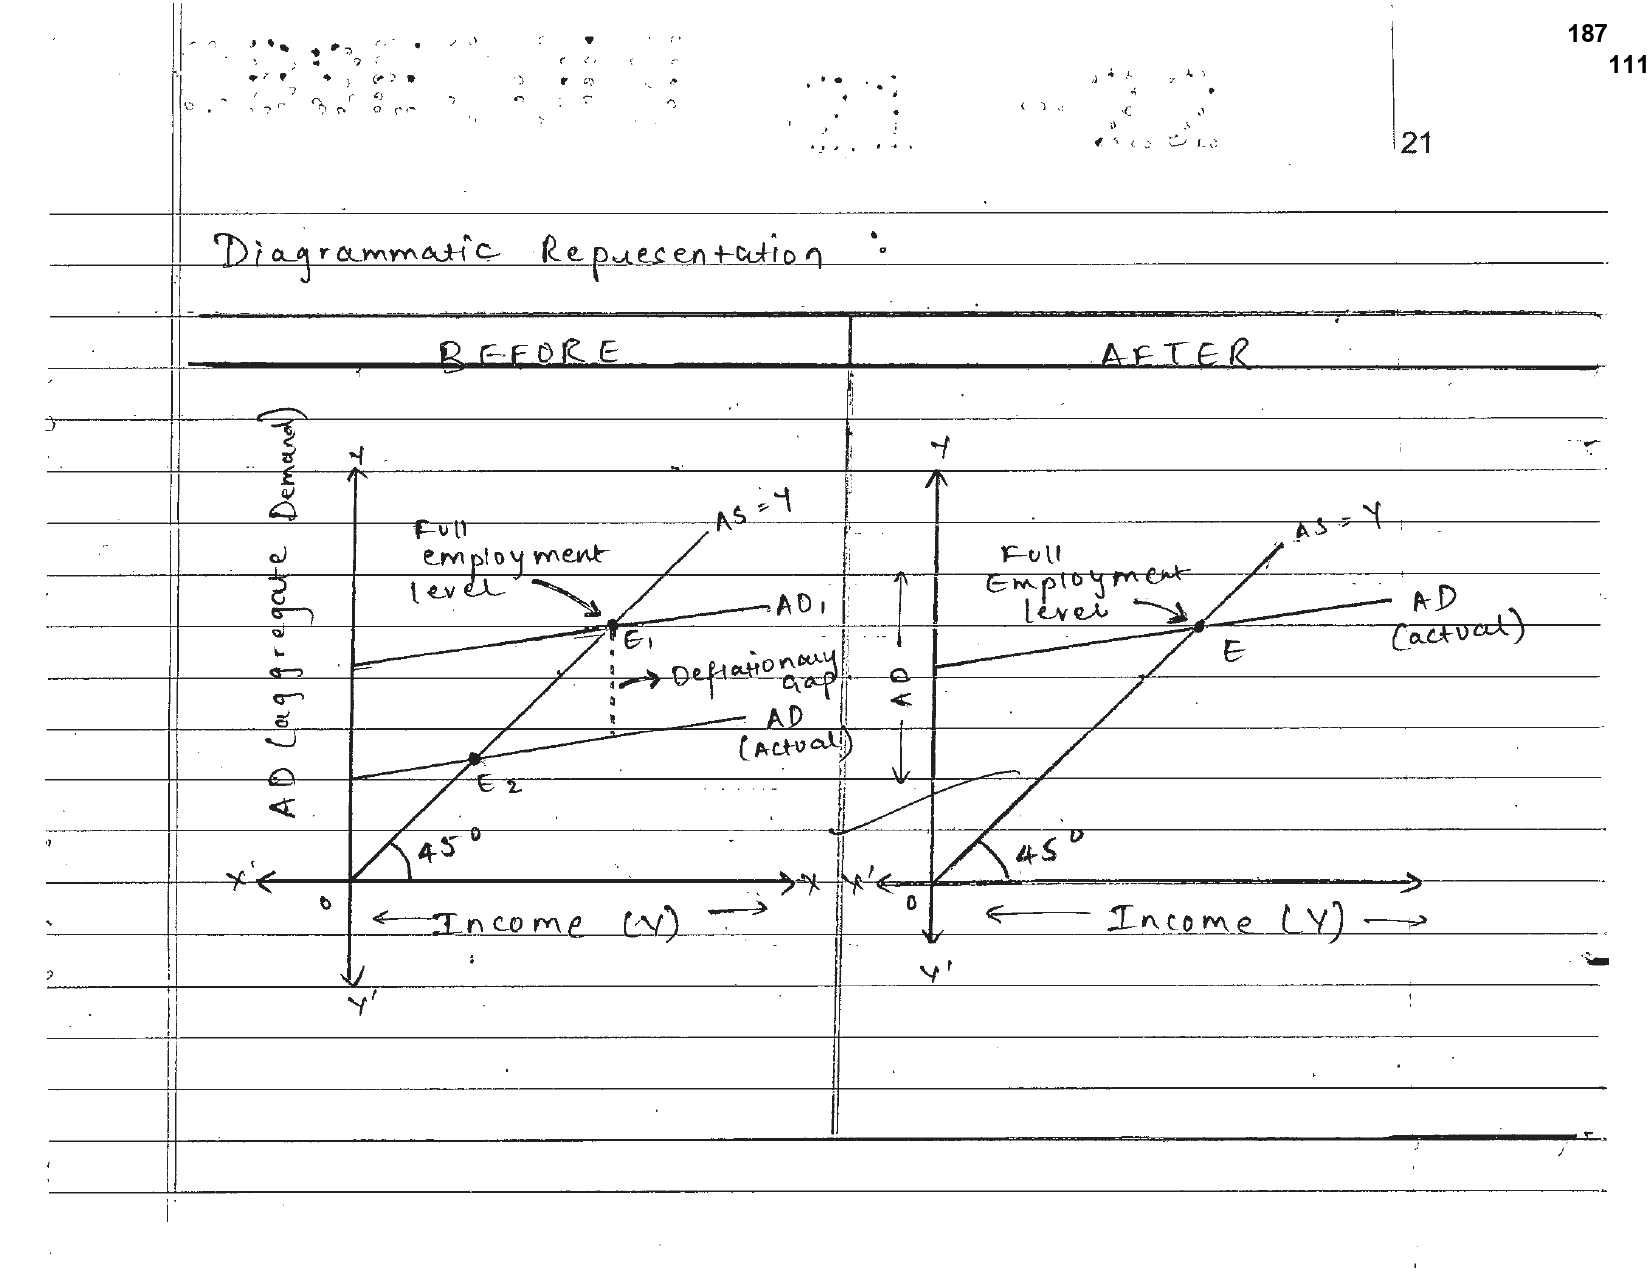 187
111
21
Diagrammatic Representation :
BEFORE
AFTER
AD (aggregate Demand)
Y
Full
employment
level
AS = Y
AD1
E1
Deflationary
Gap
AD
(Actual)
E2
45°
X'
X
O
Income (Y)
Y'
Y
Full
Employment
level
AS = Y
AD
(actual)
E
AD
45°
X'
O
Income (Y)
Y'